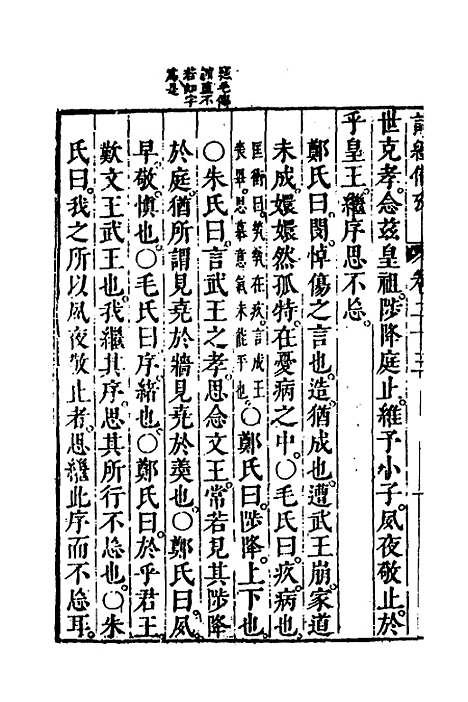 世克孝。念茲皇祖。陟降庭止。維予小子。夙夜敬止。於
乎皇王。繼序思不忘。
鄭氏曰。閔。悼傷之言也。造。猶成也。遭武王崩。家道
未成。嬛嬛然孤特。在憂病之中。○毛氏曰。疚。病也。
匡衡曰。煢煢在疚。言成王
喪畢。思慕意氣未能平也。
○鄭氏曰。陟降。上下也。
庭毛傳
訓直不
若如字
爲是
○朱氏曰。言武王之孝。思念文王。常若見其陟降
於庭。猶所謂見堯於牆。見堯於羹也。○鄭氏曰。夙。
早。敬。慎也。○毛氏曰。序。緒也。○鄭氏曰。於乎君王。
歎文王武王也。我繼其序。思其所行不忘也。○朱
氏曰。我之所以夙夜敬止者。思繼此序而不忘耳。